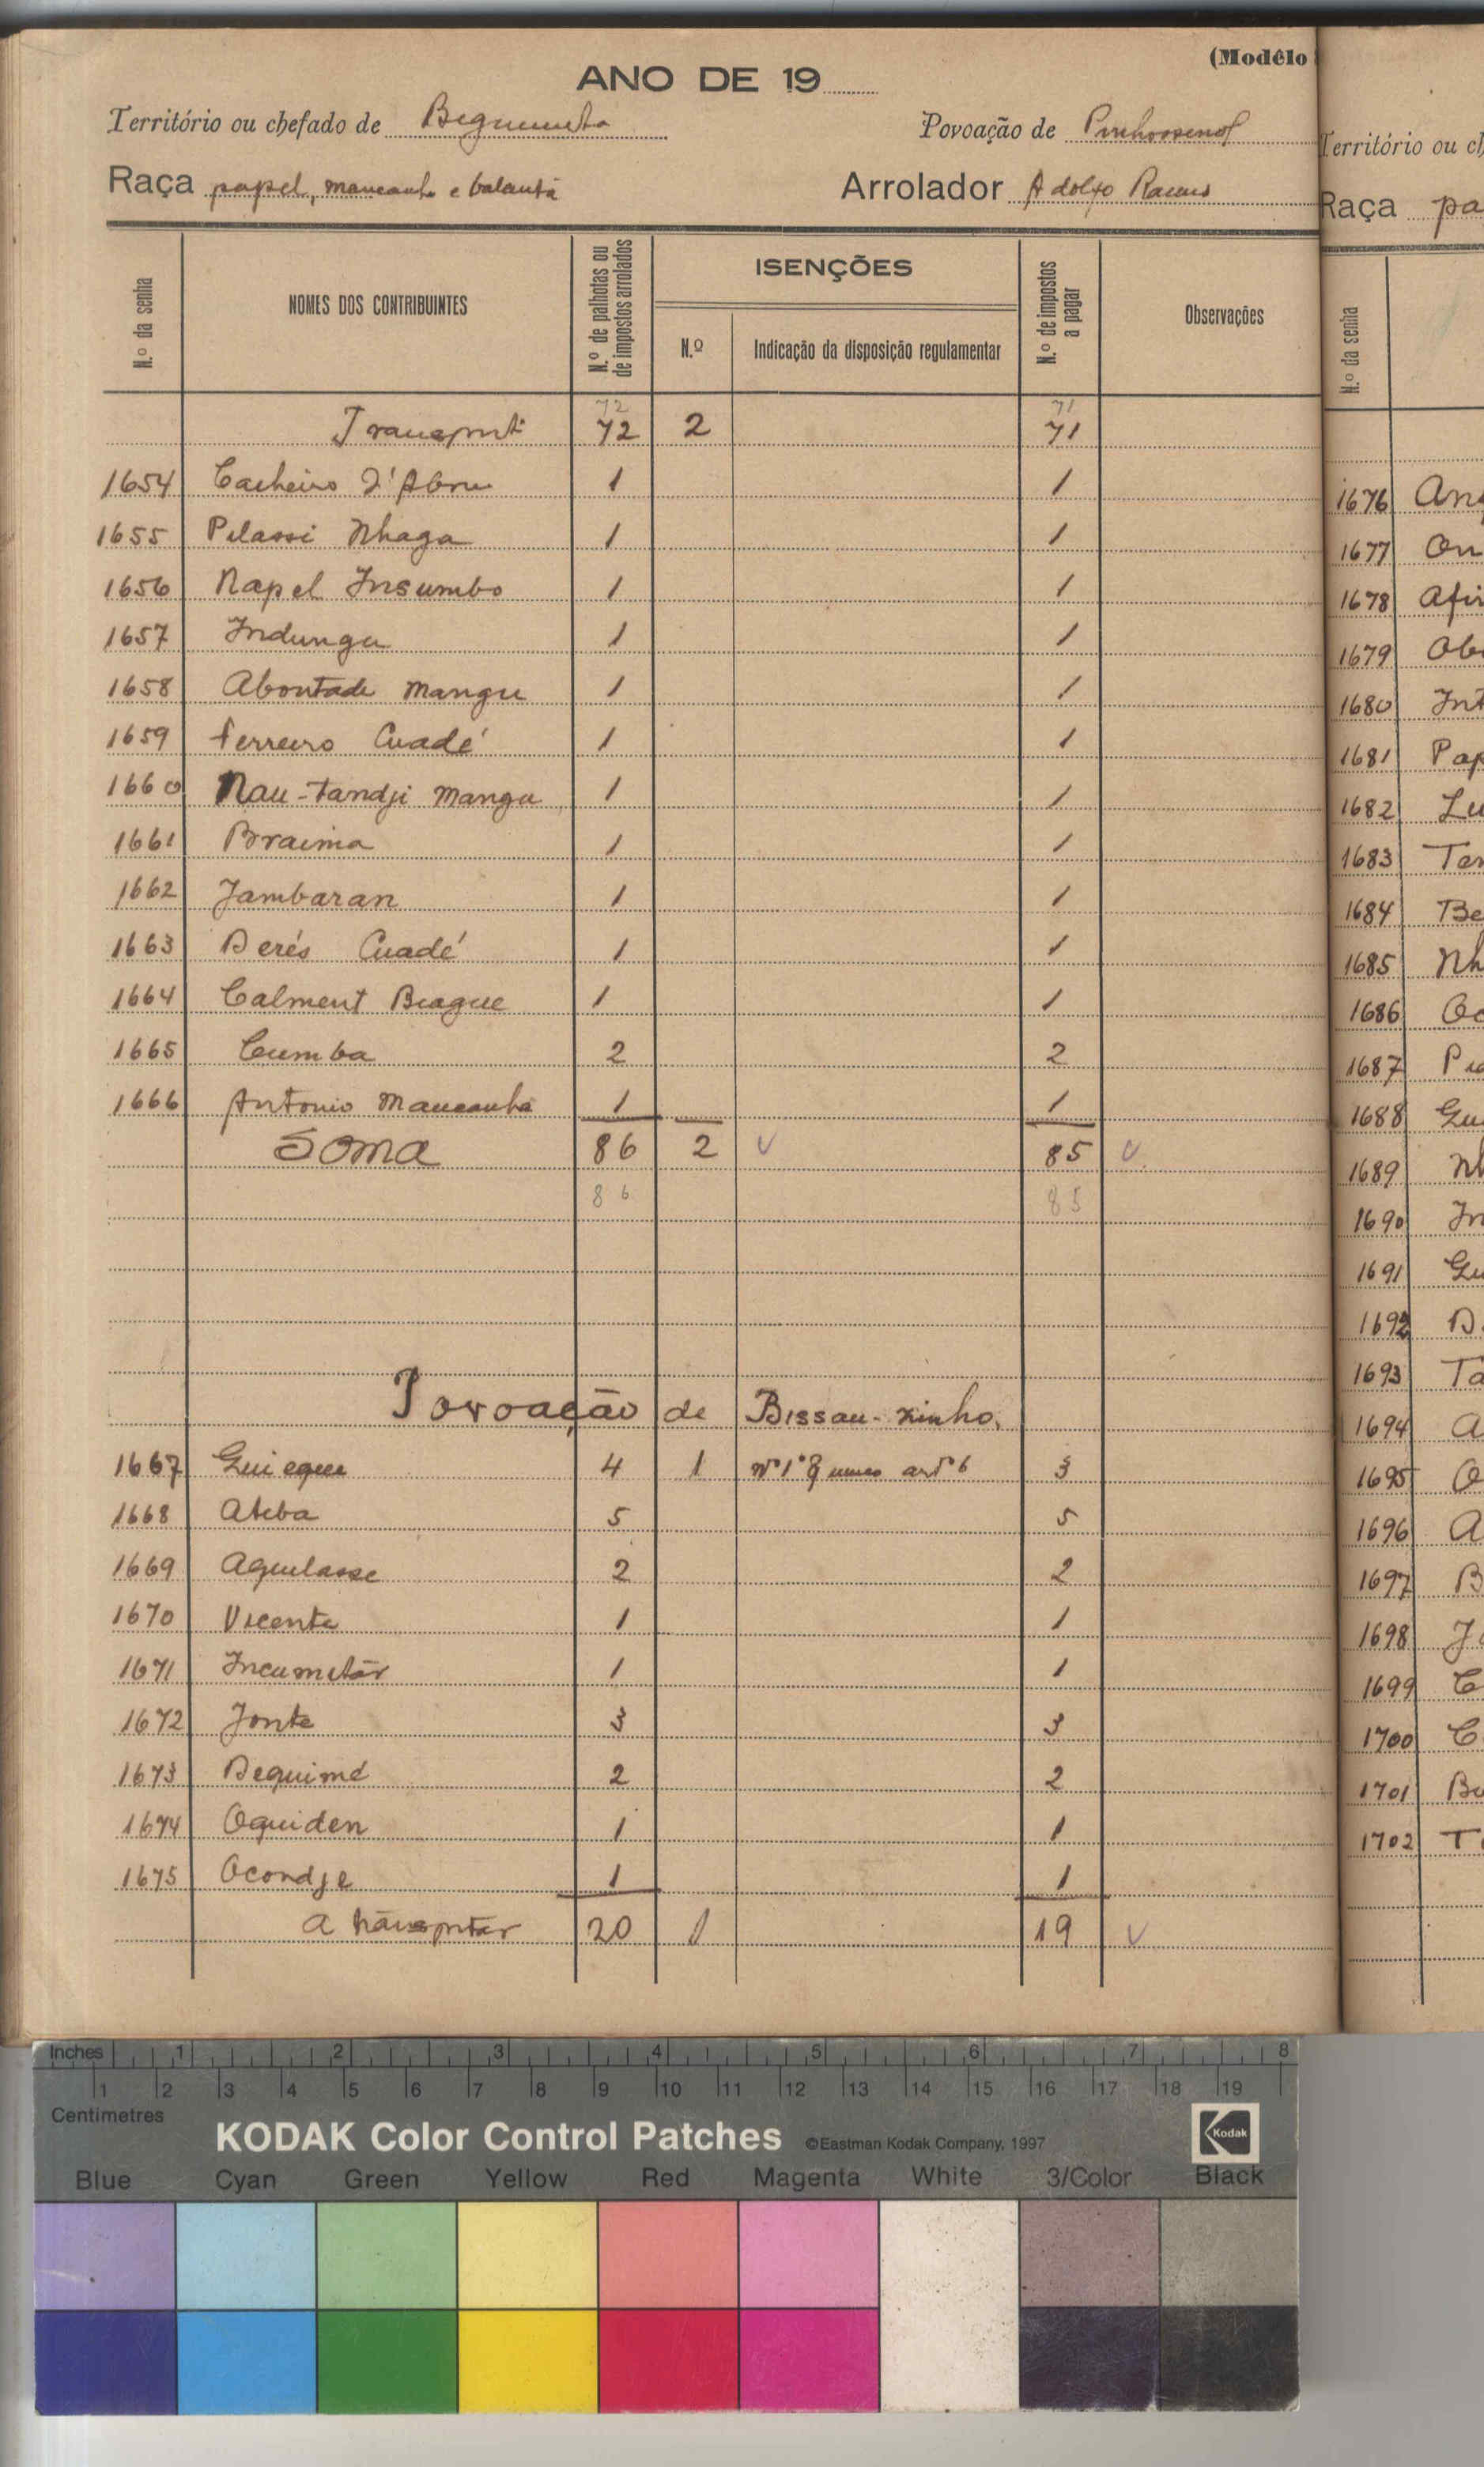 (Modêlo
ANO DE 19
Território ou chefado de
Povoação de
Raça papel, mancanha e balanta
Arrolador Adolfo Ramos
N.º da senha
NOMES DOS CONTRIBUINTES
N.º de palhotas ou de impostos arrolados
ISENÇÕES
N.º
Indicação da disposição regulamentar
N.º de impostos a pagar
Observações
72 71
Transporte 72 2 71
1654 Cacheiro D'Abru 1 1
1655 Pilassi Nhaga 1 1
1656 Napel Insumbo 1 1
1657 Indunga 1 1
1658 Abontade Mangu 1 1
1659 Ferreiro Cuadé 1 1
1660 Nau-Tandji Mangu 1 1
1661 Braima 1 1
1662 Jambaran 1 1
1663 Derés Cuadé 1 1
1664 Calment Biague 1 1
1665 Cumba 2 2
1666 Antonio Mancanha 1 1
Soma 86 2 85
86 85
Povoação de Bissau-zinho.
1667 Guiegue 4 1 3
1668 Ateba 5 5
1669 Aquilasse 2 2
1670 Vicente 1 1
1671 Incumetár 1 1
1672 Jonte 3 3
1673 Dequimé 2 2
1674 Oquiden 1 1
1675 Ocondje 1 1
A transportar 20 1 19
Território ou ch
Raça pa
N.º da senha
1676 An
1677 On
1678 Afi
1679 Ob
1680 Int
1681 Pap
1682 Lu
1683 Ter
1684 Be
1685 Nh
1686 Oc
1687 P
1688 Gu
1689 Nh
1690 In
1691 Gu
1692 D
1693 Ta
1694 A
1695 O
1696 A
1697 B
1698 J
1699 C
1700 C
1701 Bu
1702 T
Inches 1 2 3 4 5 6 7 8
1 2 3 4 5 6 7 8 9 10 11 12 13 14 15 16 17 18 19
Centimetres
KODAK Color Control Patches ©Eastman Kodak Company, 1997 Kodak
Blue Cyan Green Yellow Red Magenta White 3/Color Black